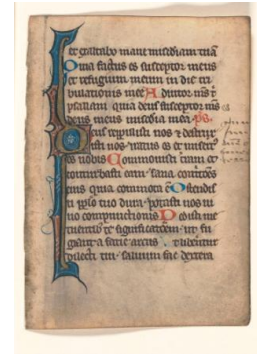 et exaltabo mane miſcdiam tuā
Quia factus es susceptor meus
et refugium meum in die tri
bulationis mee Adiutor ms t
psallam quia deus susceptor ms es
deus meus mīa mea ps.
Deus repulisti nos et destrux
isti nos iratus es et misert
es nobis Commovisti tram et
conturbasti eam sana contitōes
eius quia commota ē Ostendis
ti pplo tuo dura potasti nos vi
no compunctionis Dedisti me
tuentibus te significatōem ut fu
giant a facie arcus Ut liberentur
dilecti tui salvum fac dextera